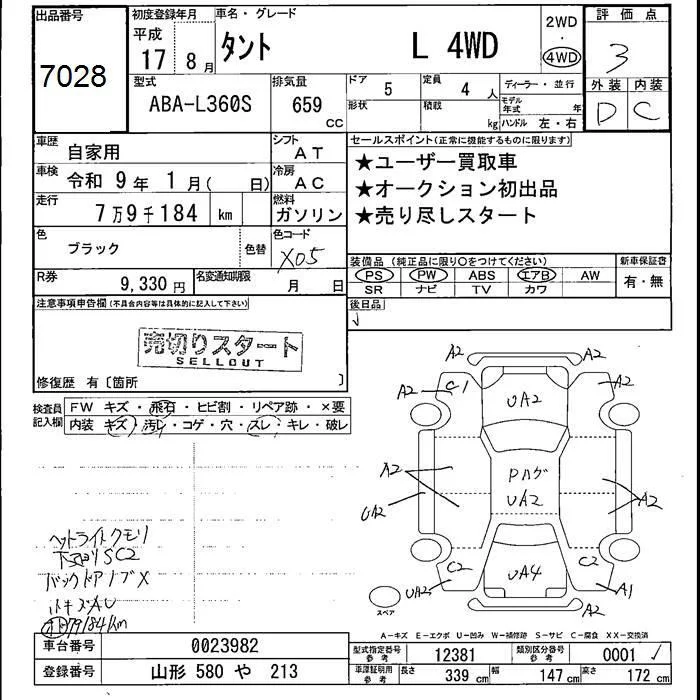 出品番号
7028
初度登録年月
平成
17 8月
車名・グレード
タント L 4WD
2WD
・
4WD
評価点
3
外装 内装
D C
型式
ABA-L360S
排気量
659
CC
ドア
5
定員
4 人
形状
積載
kg
ディーラー・並行
モデル年式 年
ハンドル 左・右
車歴
自家用
シフト
AT
車検
令和 9年 1月( 日)
冷房
AC
走行
7万9千184 km
燃料
ガソリン
色
ブラック
色替
色コード
X05
R券
9,330 円
名変通知期限
月 日
セールスポイント(正常に機能するものに限ります)
★ユーザー買取車
★オークション初出品
★売り尽しスタート
装備品 (純正品に限り○をつけてください)
PS PW ABS エアB AW
SR ナビ TV カワ
新車保証書
有・無
後日品
注意事項申告欄(不具合内容等は具体的に記入して下さい)
売切りスタート
SELLOUT
修復歴 有〔箇所 〕
検査員記入欄
FW キズ・飛石・ヒビ割・リペア跡・×要
内装 キズ・汚レ・コゲ・穴・スレ・キレ・破レ
A2 A2
A2 C1 UA2 A2
A2 Pハゲ
UA2
UA2 A2
UA2 C2 UA4 C2 A1
A2
スペア
ヘットライトクモリ
下回りSC2
バックドアノブX
小キズAU
79184km
A-キズ E-エクボ U-凹み W-補修跡 S-サビ C-腐食 XX-交換済
車台番号
0023982
登録番号
山形 580 や 213
型式指定番号
参考
12381
類別区分番号
参考
0001
車庫証明用
参考
長さ 339 cm 幅 147 cm 高さ 172 cm